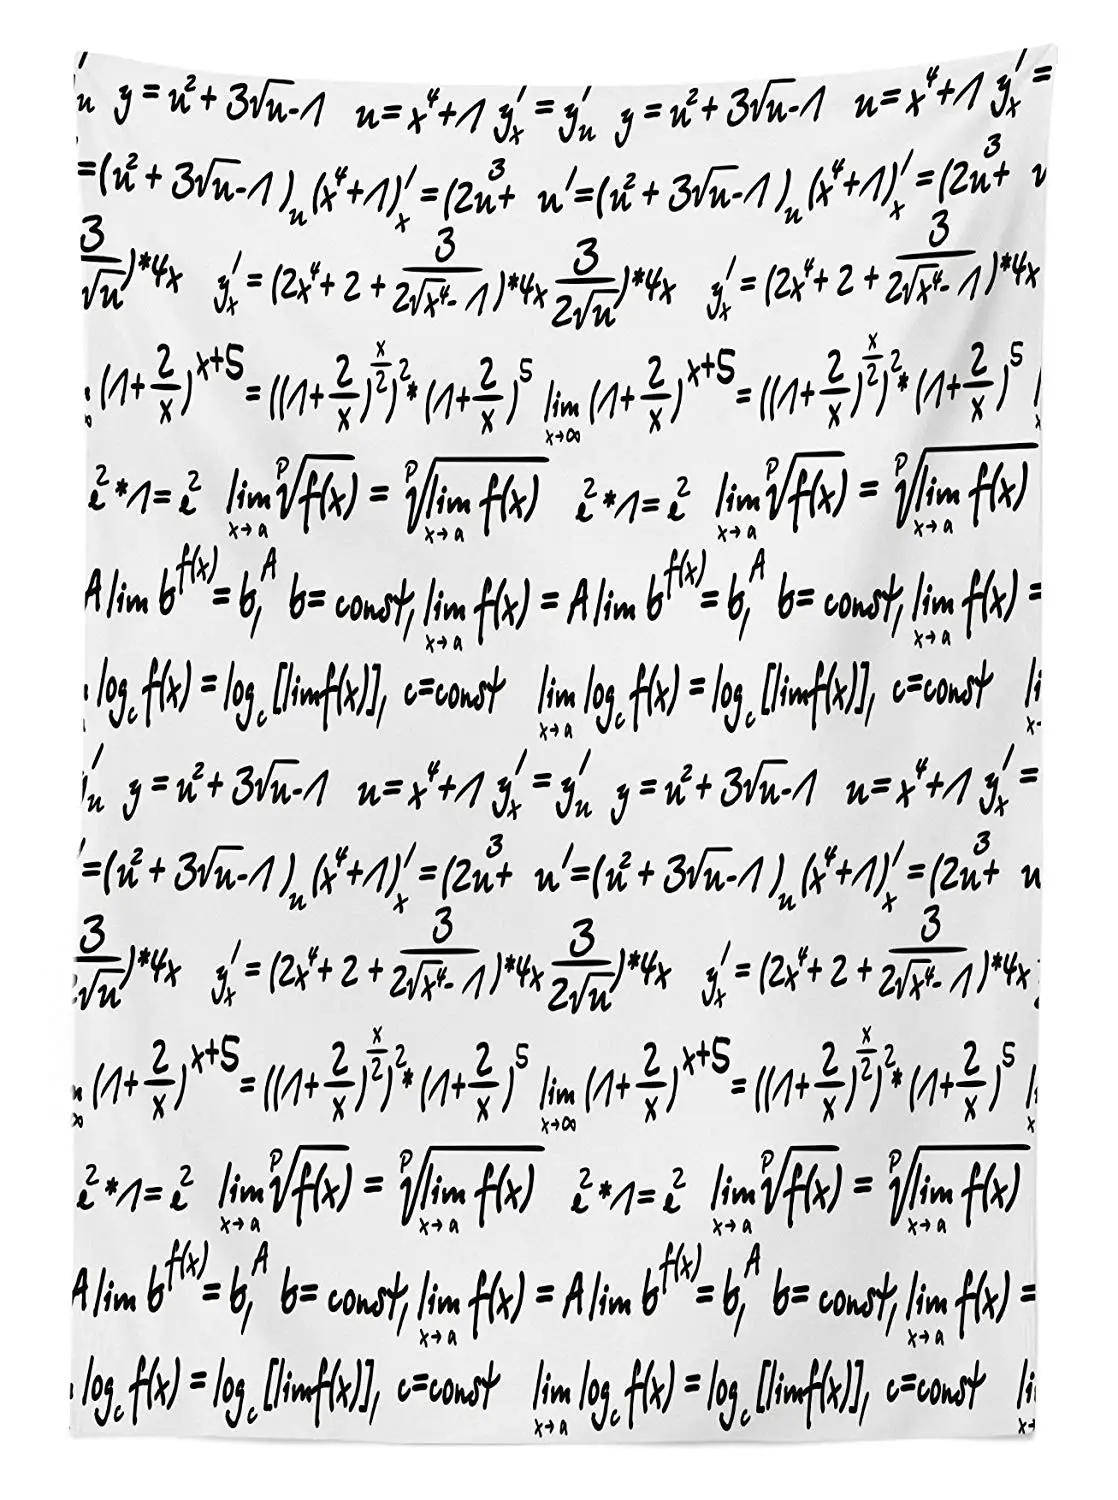 u y = u² + 3√u-1 u = x⁴+1 y'ₓ = y'ᵤ y = u² + 3√u-1 u = x⁴+1 y'ₓ =
=(u² + 3√u-1)ᵤ (x⁴+1)'ₓ = (2u³+ u'=(u² + 3√u-1)ᵤ (x⁴+1)'ₓ = (2u³+ u
3/√u)*4x y'ₓ = (2x⁴+ 2 + 3/2√x⁴-1)*4x 3/2√u)*4x y'ₓ = (2x⁴+ 2 + 3/2√x⁴-1)*4x
∞ (1+2/x)^x+5 = ((1+2/x)^x/2)²* (1+2/x)⁵ lim x→∞ (1+2/x)^x+5 = ((1+2/x)^x/2)²* (1+2/x)⁵
e²*1= e² lim x→a ᵖ√f(x) = ᵖ√lim x→a f(x) e²*1= e² lim x→a ᵖ√f(x) = ᵖ√lim x→a f(x)
A lim b^f(x) = b,^A b= const, lim x→a f(x) = A lim b^f(x) = b,^A b= const, lim x→a f(x) =
log_c f(x) = log_c [limf(x)], c=const lim x→a log_c f(x) = log_c [limf(x)], c=const li x→
y'ᵤ y = u² + 3√u-1 u = x⁴+1 y'ₓ = y'ᵤ y = u² + 3√u-1 u = x⁴+1 y'ₓ =
'=(u² + 3√u-1)ᵤ (x⁴+1)'ₓ = (2u³+ u'=(u² + 3√u-1)ᵤ (x⁴+1)'ₓ = (2u³+ u
3/2√u)*4x y'ₓ = (2x⁴+ 2 + 3/2√x⁴-1)*4x 3/2√u)*4x y'ₓ = (2x⁴+ 2 + 3/2√x⁴-1)*4x
∞ (1+2/x)^x+5 = ((1+2/x)^x/2)²* (1+2/x)⁵ lim x→∞ (1+2/x)^x+5 = ((1+2/x)^x/2)²* (1+2/x)⁵ li
e²*1= e² lim x→a ᵖ√f(x) = ᵖ√lim x→a f(x) e²*1= e² lim x→a ᵖ√f(x) = ᵖ√lim x→a f(x)
A lim b^f(x) = b,^A b= const, lim x→a f(x) = A lim b^f(x) = b,^A b= const, lim x→a f(x) =
log_c f(x) = log_c [limf(x)], c=const lim x→a log_c f(x) = log_c [limf(x)], c=const li x→